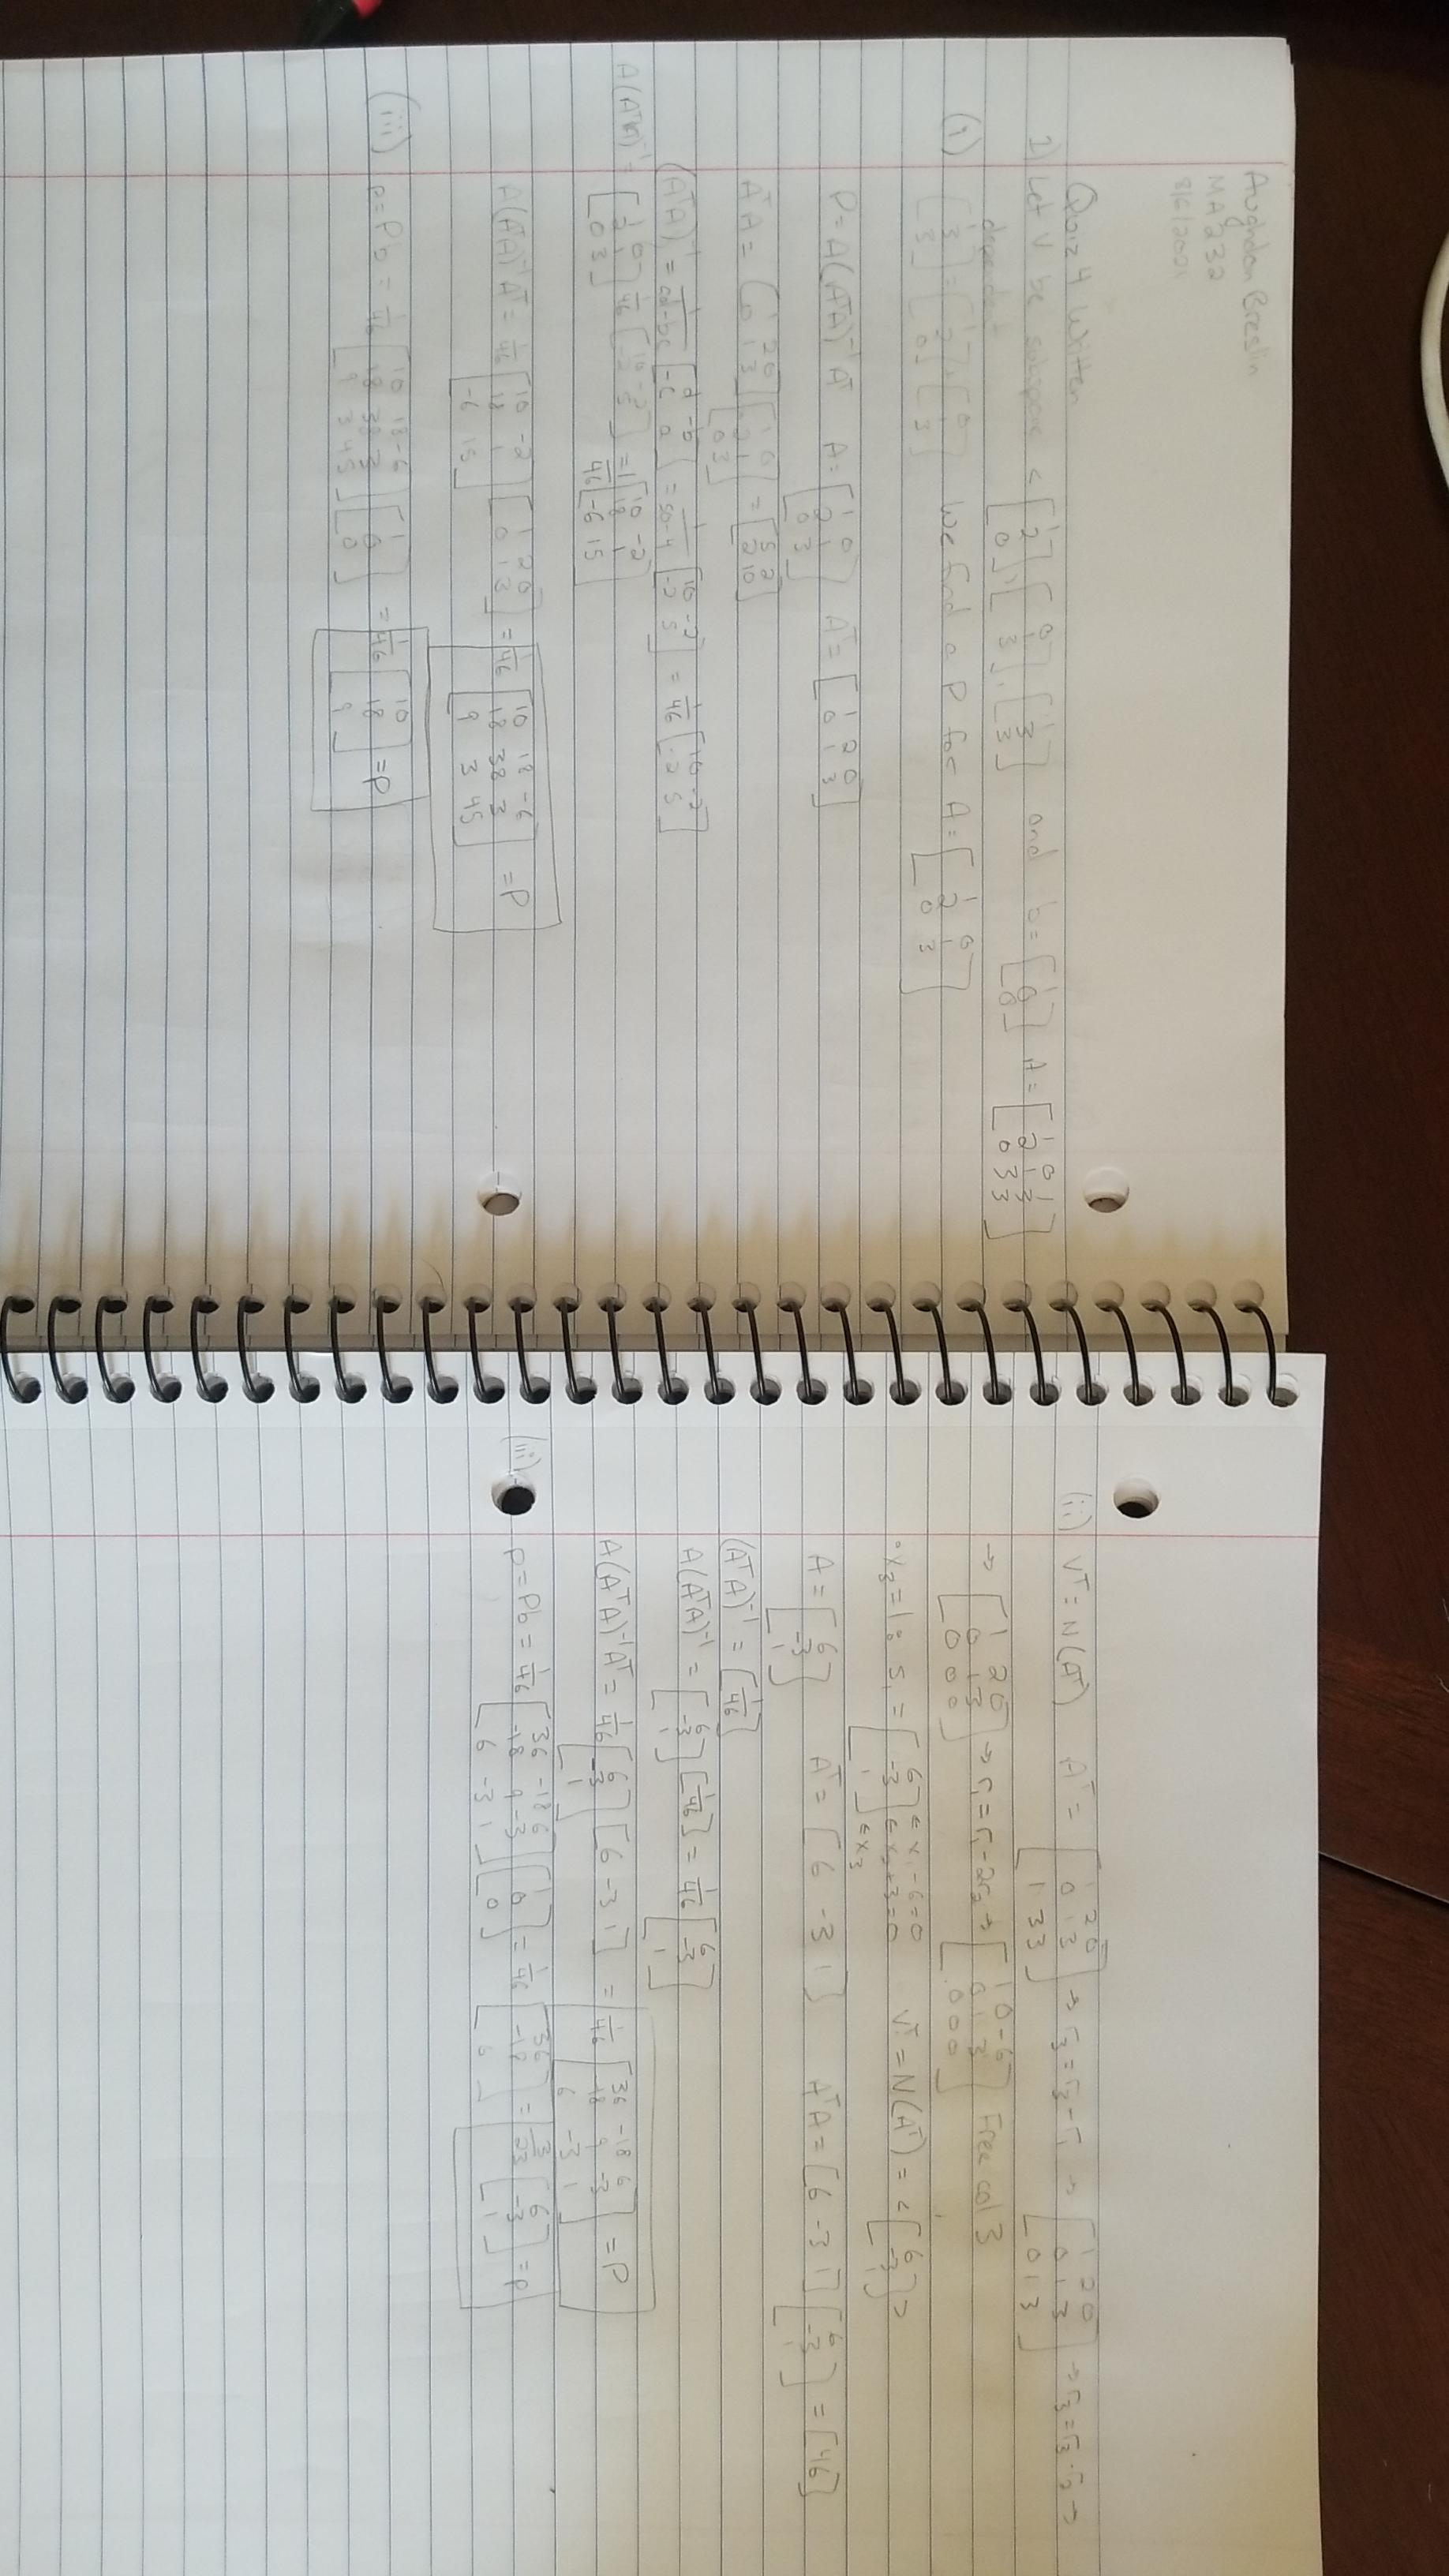 Aughdon Breslin
MA232
8/6/2021
Quiz 4 Written
1) Let V be subspace < [1 2 0], [0 1 3], [1 3 3] and b = [1 0 0] A = [1 0 1; 2 1 3; 0 3 3]
dependent
(i) [1 3 3] = [1 2 0] + [0 1 3] We find a P for A = [1 0; 2 1; 0 3]
P = A(AᵀA)⁻¹Aᵀ A = [1 0; 2 1; 0 3] Aᵀ = [1 2 0; 0 1 3]
AᵀA = [1 2 0; 0 1 3] [1 0; 2 1; 0 3] = [5 2; 2 10]
(AᵀA)⁻¹ = 1/(ad-bc) [d -b; -c a] = 1/(50-4) [10 -2; -2 5] = 1/46 [10 -2; -2 5]
A(AᵀA)⁻¹ = [1 0; 2 1; 0 3] 1/46 [10 -2; -2 5] = 1/46 [10 -2; 18 1; -6 15]
A(AᵀA)⁻¹Aᵀ = 1/46 [10 -2; 18 1; -6 15] [1 2 0; 0 1 3] = 1/46 [10 18 -6; 18 38 3; 9 3 45] = P
(iii) p = Pb = 1/46 [10 18 -6; 18 38 3; 9 3 45] [1 0 0] = 1/46 [10 18 9] = p
(ii) Vᵀ = N(Aᵀ) Aᵀ = [1 2 0; 0 1 3; 1 3 3] → r₃ = r₃ - r₁ → [1 2 0; 0 1 3; 0 1 3] → r₃ = r₃ - r₂ →
→ [1 2 0; 0 1 3; 0 0 0] → r₁ = r₁ - 2r₂ → [1 0 -6; 0 1 3; 0 0 0] Free col 3
• x₃ = 1: s₁ = [6 -3 1] ← x₁ - 6 = 0 ← x₂ + 3 = 0 ← x₃ Vᵀ = N(Aᵀ) = < [6 -3 1] >
A = [6 -3 1] Aᵀ = [6 -3 1] AᵀA = [6 -3 1] [6 -3 1] = [46]
(AᵀA)⁻¹ = [1/46]
A(AᵀA)⁻¹ = [6 -3 1] [1/46] = 1/46 [6 -3 1]
A(AᵀA)⁻¹Aᵀ = 1/46 [6 -3 1] [6 -3 1] = 1/46 [36 -18 6; -18 9 -3; 6 -3 1] = P
(iii) p = Pb = 1/46 [36 -18 6; -18 9 -3; 6 -3 1] [1 0 0] = 1/46 [36 -18 6] = 3/23 [6 -3 1] = p